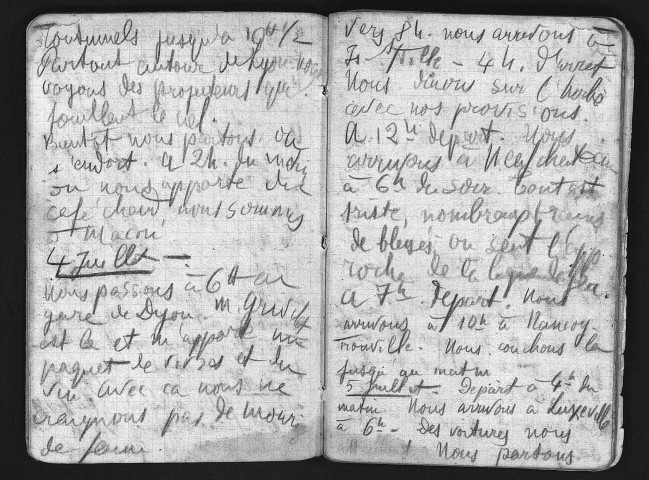 Tontinnels jusqu'à 10H 1/2
Partout autour de Lyon nous
voyons des projecteurs qui
fouillent le ciel.
Bientôt nous partons on
s'endort. A 2h. du matin
on nous apporte du
café chaud nous sommes
à Macon
4 Juillet —
Nous passons à 6H en
gare de Dijon. M.
est là et m'apporte un
paquet de vivres et du
vin avec ça nous ne
craignons pas de mourir
de faim.
Vers 8h. nous arrivons à
Is s/Tille - 4h. d'arrêt
Nous dinons sur l'herbe
avec nos provisions.
A 12h départ. Nous
arrivons à Neufchateau
à 6h du soir. Tout est
triste, nombreux trains
de blessés on sent l'app
roche de la ligne de feu.
A 7h Départ. Nous
arrivons à 10h à Nancoy-
rouville. Nous couchons là
jusqu'au matin
5 Juillet. Départ à 4h du
matin Nous arrivons à Luxeville
à 6h - des voitures nous
! Nous partons